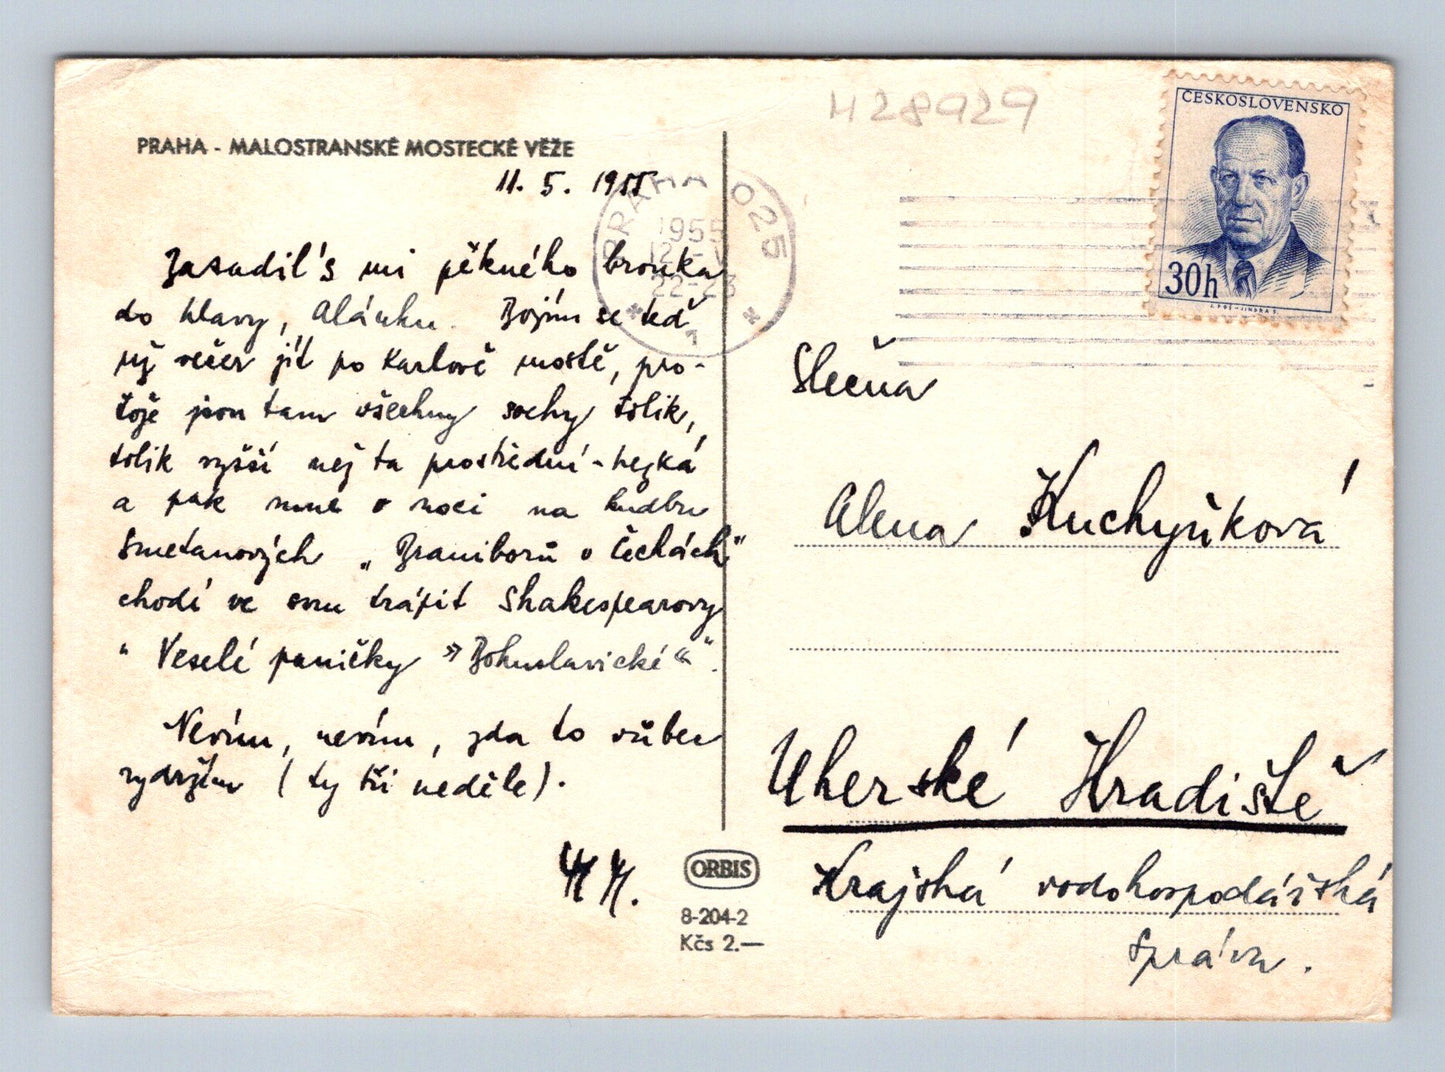 H28929
ČESKOSLOVENSKO
30h
PRAHA - MALOSTRANSKÉ MOSTECKÉ VĚŽE
11. 5. 1955
PRAHA 025
1955
12 -V
22-23
1
Zasadil's mi pěkného brouka
do hlavy, Alánku. Bojím se teď
už večer jít po Karlově mostě, pro-
tože jsou tam všechny sochy tolik,
tolik vyšší než ta prostřední - hezká
a pak mne v noci na hudbu
Smetanových „Braniborů v Čechách"
chodí ve snu trápit Shakespearovy
" Veselé paničky » Bohuslavické «".
Nevím, nevím, zda to vůbec
vydržím (ty tři neděle).
Slečna
Alena Kuchyňková
Uherské Hradiště
Krajská vodohospodářská
správa.
ORBIS
8-204-2
Kčs 2.—